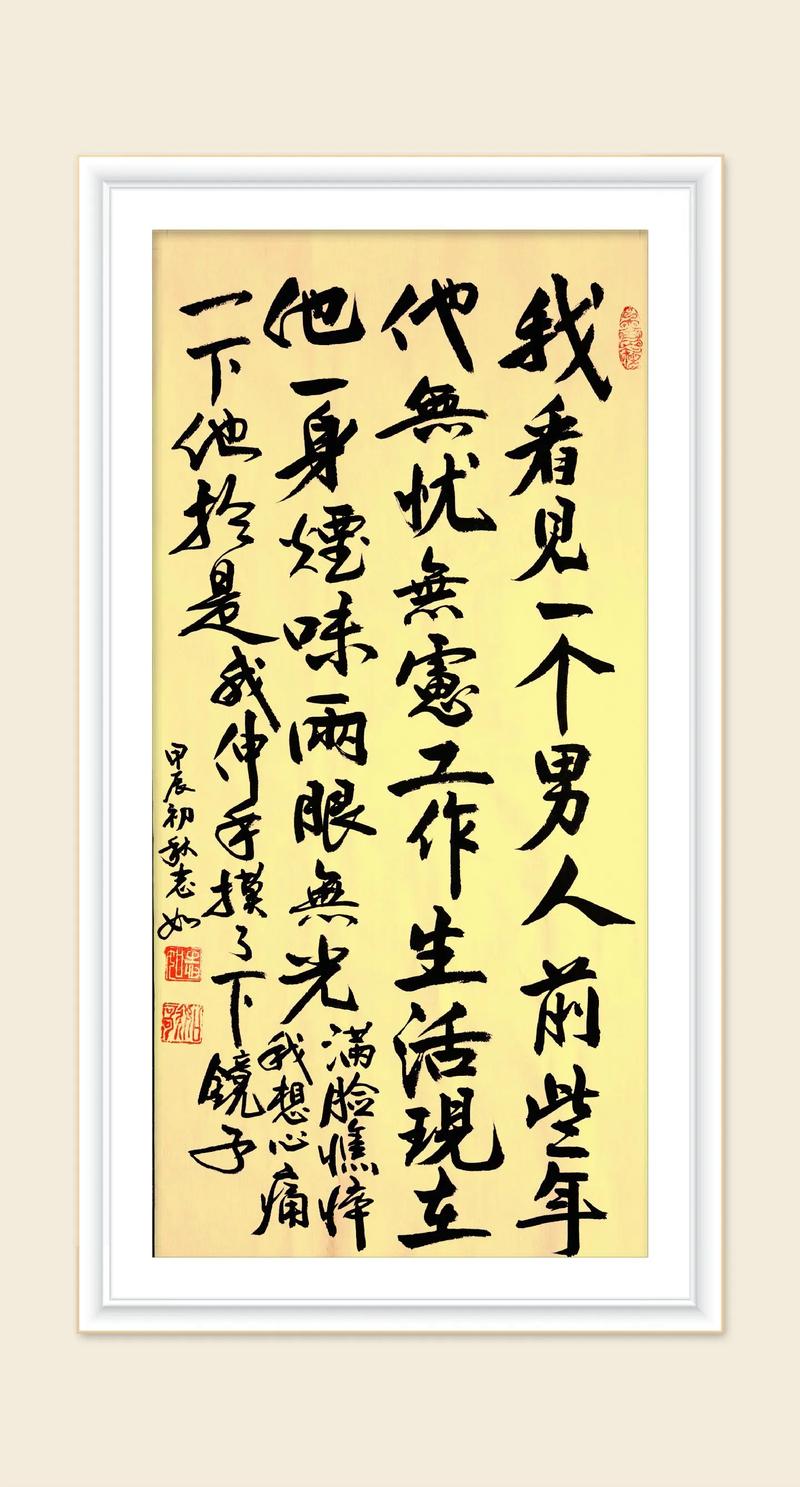 我看見一个男人前些年
他無忧無慮工作生活現在
他一身煙味兩眼無光
滿脸憔悴
我想心痛
一下他於是我伸手摸了下鏡子
甲辰初秋志如